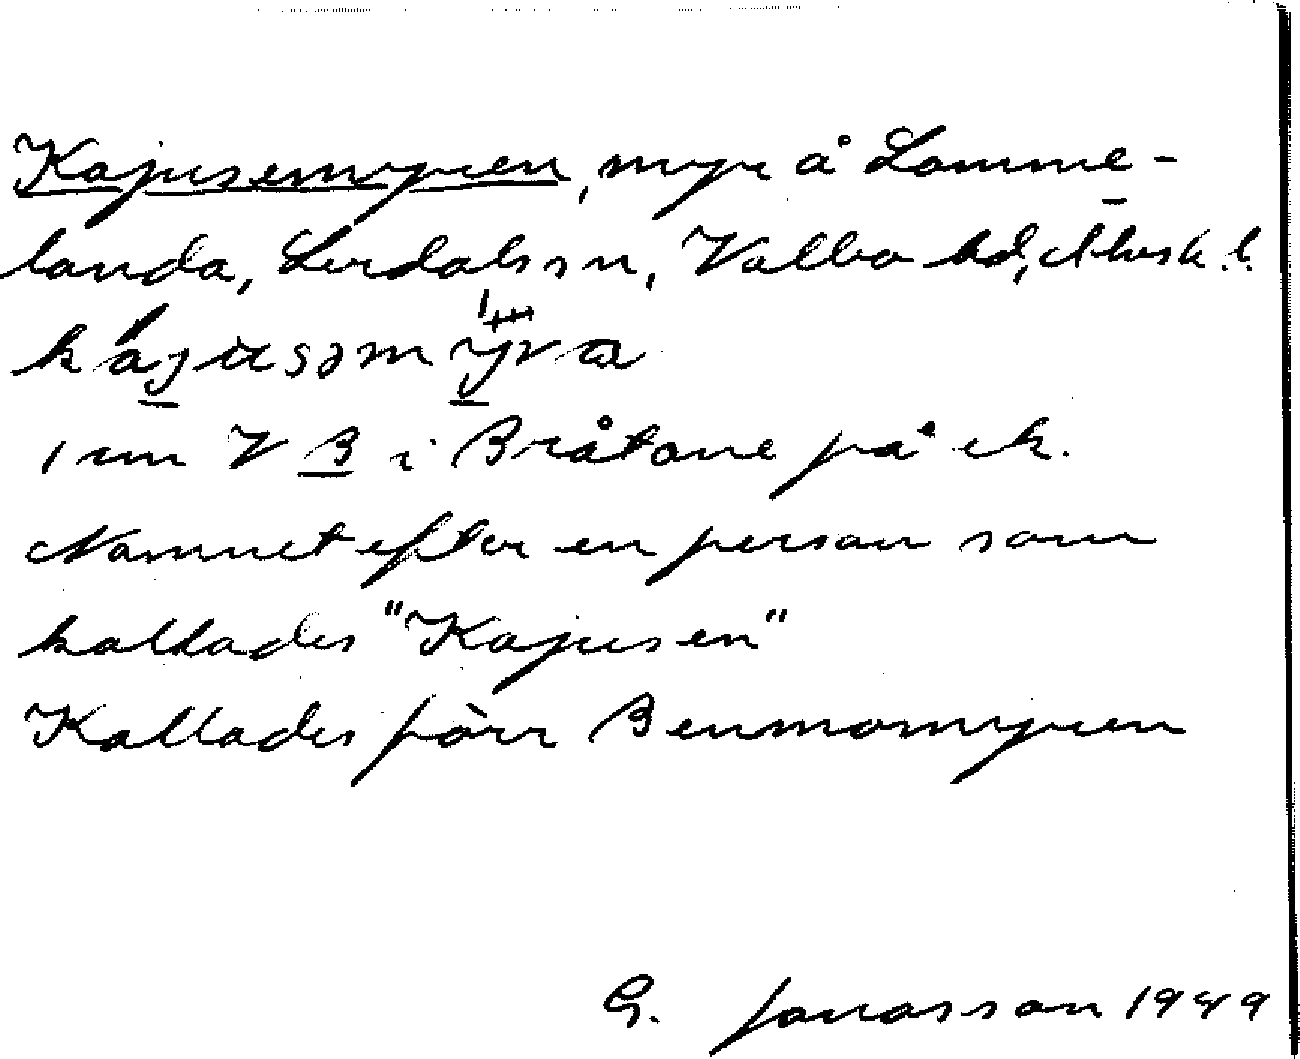 Kajusemyren, myr å Lomme-
landa, Lerdals sn, Valbo hd, Älvsb. l.
1 cm V B i Bråtane på ek.
Namnet efter en person som
kallades "Kajusen"
Kallades förr Benmomyren
G. Jonasson 1989